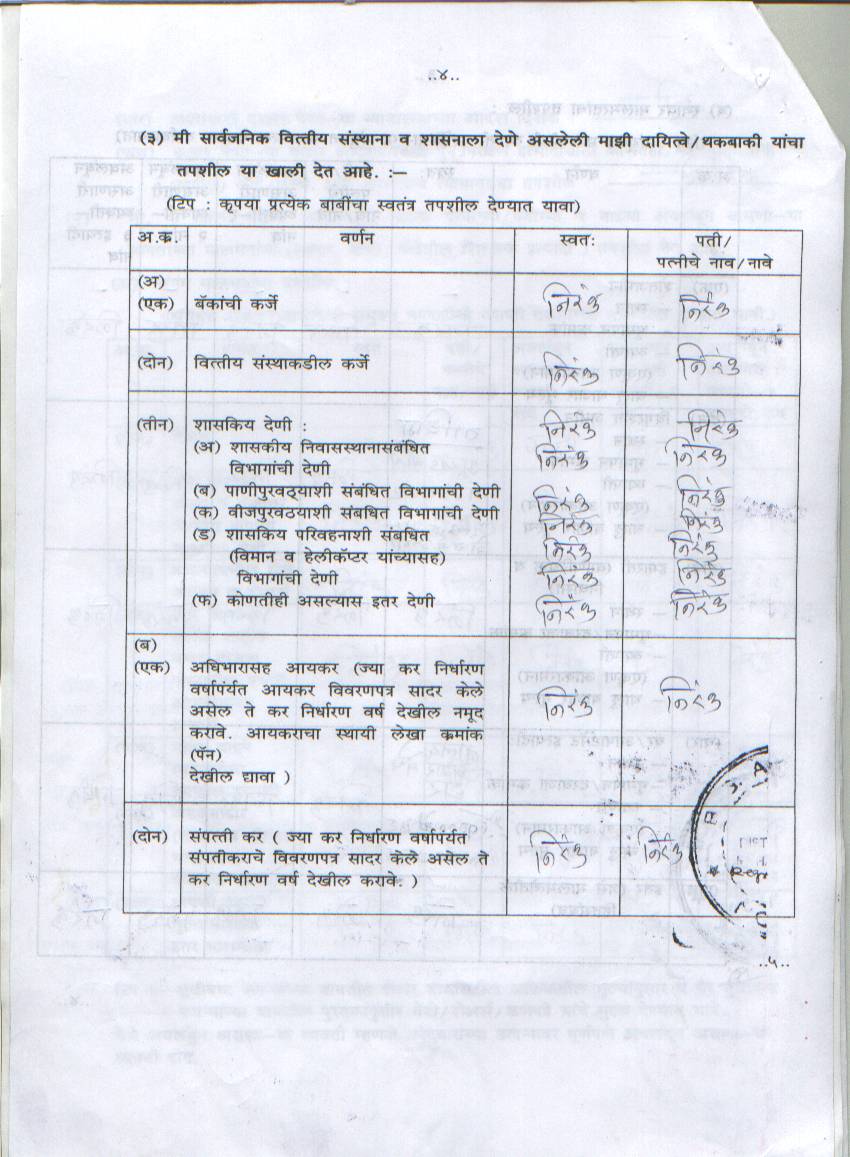 ..४..
(३) मी सार्वजनिक वित्तीय संस्थाना व शासनाला देणे असलेली माझी दायित्वे/थकबाकी यांचा
तपशील या खाली देत आहे. :–
(टिप : कृपया प्रत्येक बाबींचा स्वतंत्र तपशील देण्यात यावा)
अ.क. वर्णन स्वतः पती/
पत्नीचे नाव/नावे
(अ)
(एक) बॅकांची कर्जे निरंक निरंक
(दोन) वित्तीय संस्थाकडील कर्जे निरंक निरंक
(तीन) शासकिय देणी : निरंक निरंक
(अ) शासकीय निवासस्थानासंबंधित निरंक निरंक
विभागांची देणी
(ब) पाणीपुरवठ्याशी संबंधित विभागांची देणी निरंक निरंक
(क) वीजपुरवठयाशी संबंधित विभागांची देणी निरंक निरंक
(ड) शासकिय परिवहनाशी संबंधित निरंक निरंक
(विमान व हेलीकॅप्टर यांच्यासह)
विभागांची देणी निरंक निरंक
(फ) कोणतीही असल्यास इतर देणी निरंक निरंक
(ब)
(एक) अधिभारासह आयकर (ज्या कर निर्धारण
वर्षापर्यंत आयकर विवरणपत्र सादर केले
असेल ते कर निर्धारण वर्ष देखील नमूद निरंक निरंक
करावे. आयकराचा स्थायी लेखा कमांक
(पॅन)
देखील द्यावा )
(दोन) संपत्ती कर ( ज्या कर निर्धारण वर्षापर्यंत
संपतीकराचे विवरणपत्र सादर केले असेल ते निरंक निरंक
कर निर्धारण वर्ष देखील करावे. )
..५..